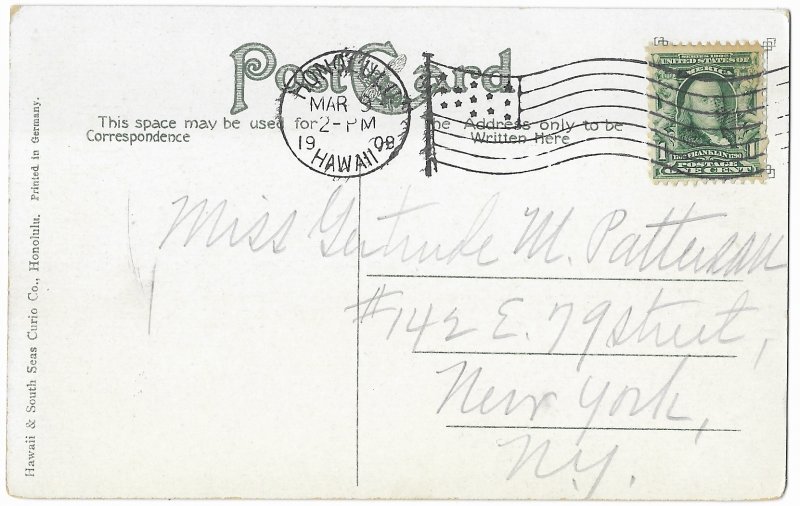 Post Card
HONOLULU
MAR 9
2-PM
1908
HAWAII
SERIES 1902
UNITED STATES OF
AMERICA
1 FRANKLIN 1790 1
POSTAGE
ONE CENT
This space may be used for
Correspondence
the Address only to be
Written Here
Miss Gertrude M. Patterson
#142 E. 79 Street,
New York,
N.Y.
Hawaii & South Seas Curio Co., Honolulu. Printed in Germany.